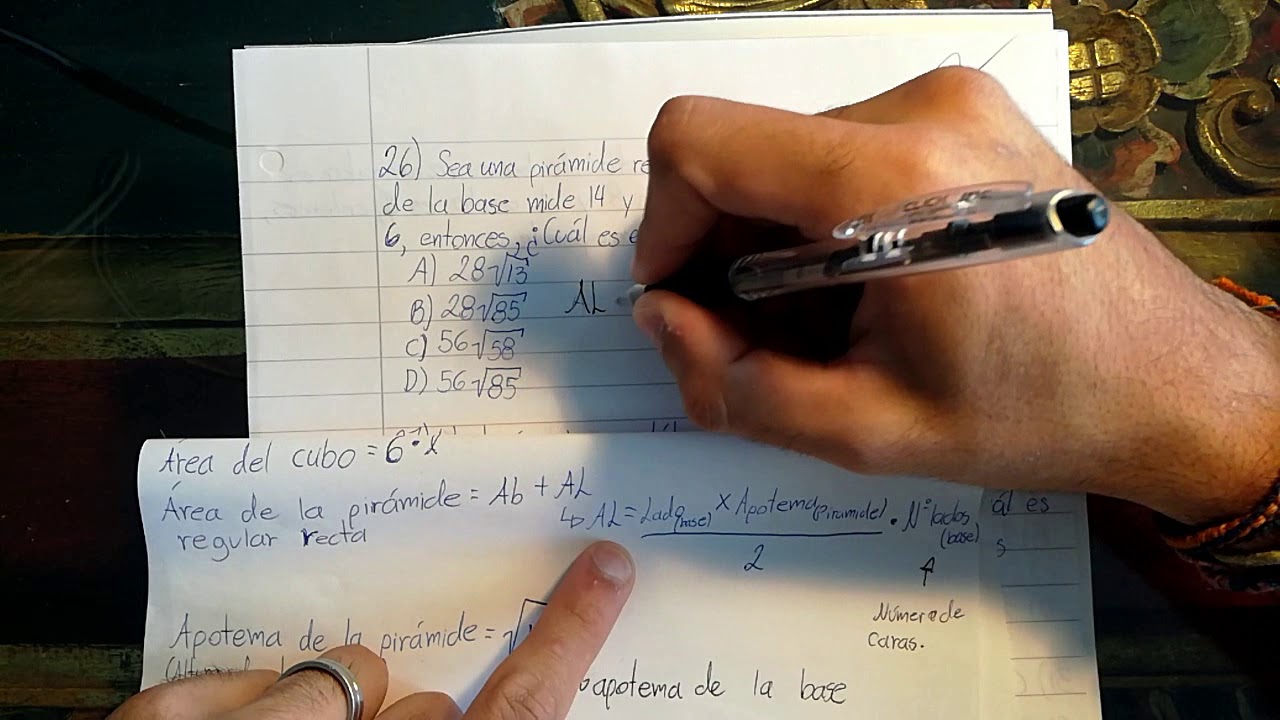 26) Sea una pirámide
de la base mide 14 y
6, entonces, ¿Cuál es
A) 28√13
B) 28√85
C) 56√58
D) 56√85
AL
Área del cubo = 6 ·
Área de la pirámide = Ab + AL
regular recta
↳ AL = Lado(base) x Apotema(piramide) · N° lados (base)
2
↑
Número de
caras.
ál es
s
Apotema de la pirámide = √
apotema de la base